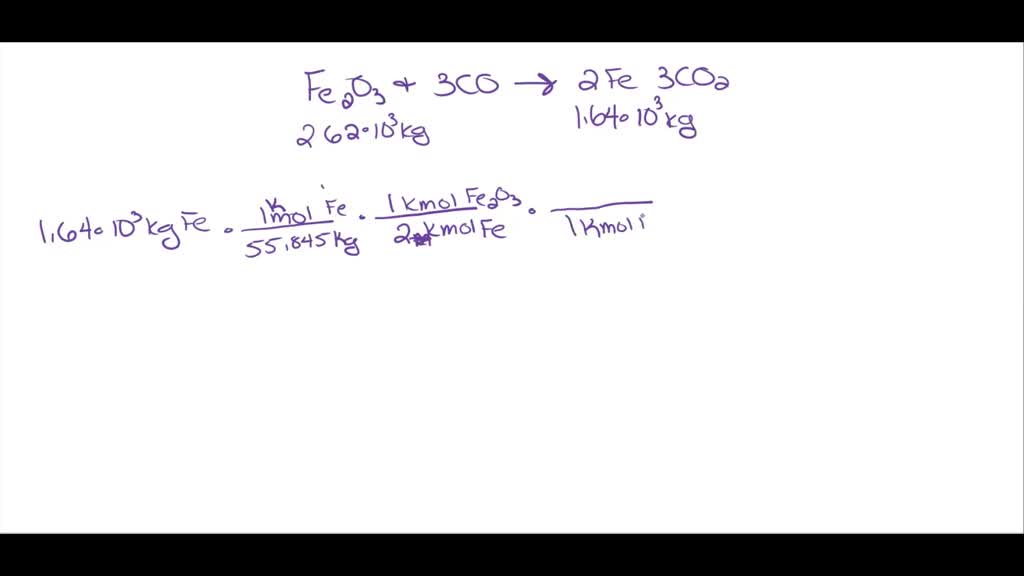 Fe₂O₃ + 3CO → 2Fe 3CO₂
262•10³kg 1.64•10³kg
1.64•10³kg Fe • 1kmol Fe / 55.845kg • 1kmol Fe₂O₃ / 2kmol Fe • / 1kmol